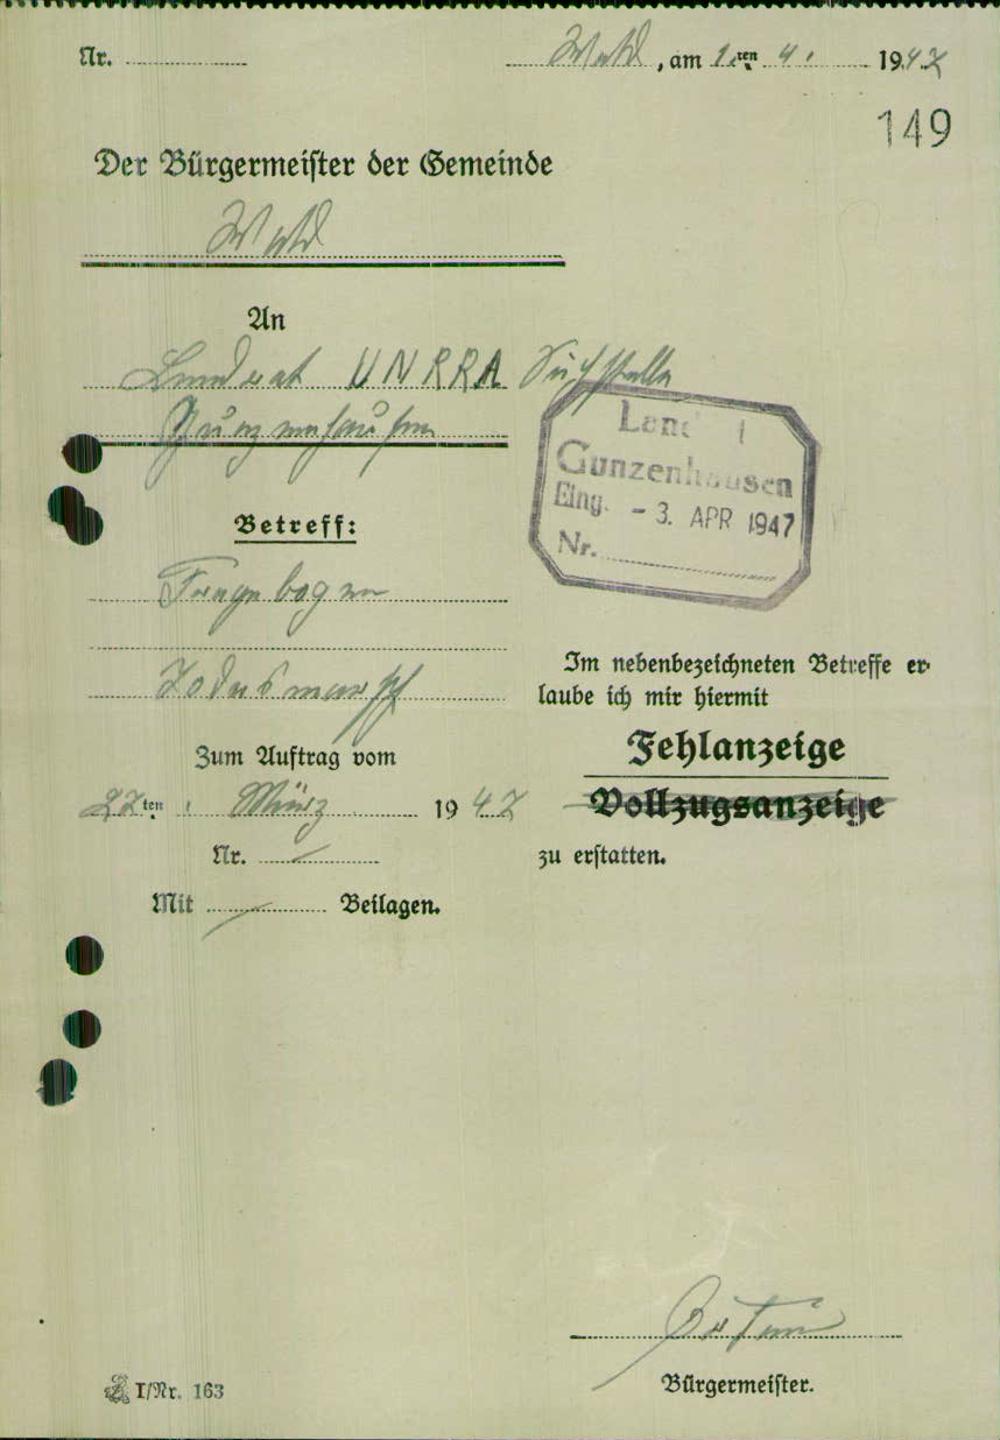 Nr.
Wald, am 1.ten 4. 1947
149
Der Bürgermeister der Gemeinde
Wald
An
Landrat UNRRA Suchstelle
Gunzenhausen
Land
Gunzenhausen
Eing. - 3. APR 1947
Nr.
Betreff:
Fragebogen
Todesmarsch
Im nebenbezeichneten Betreffe er-
laube ich mir hiermit
Zum Auftrag vom
Fehlanzeige
27ten März 1947
Vollzugsanzeige
Nr. /
zu erstatten.
Mit / Beilagen.
Bürgermeister.
I/Nr. 163